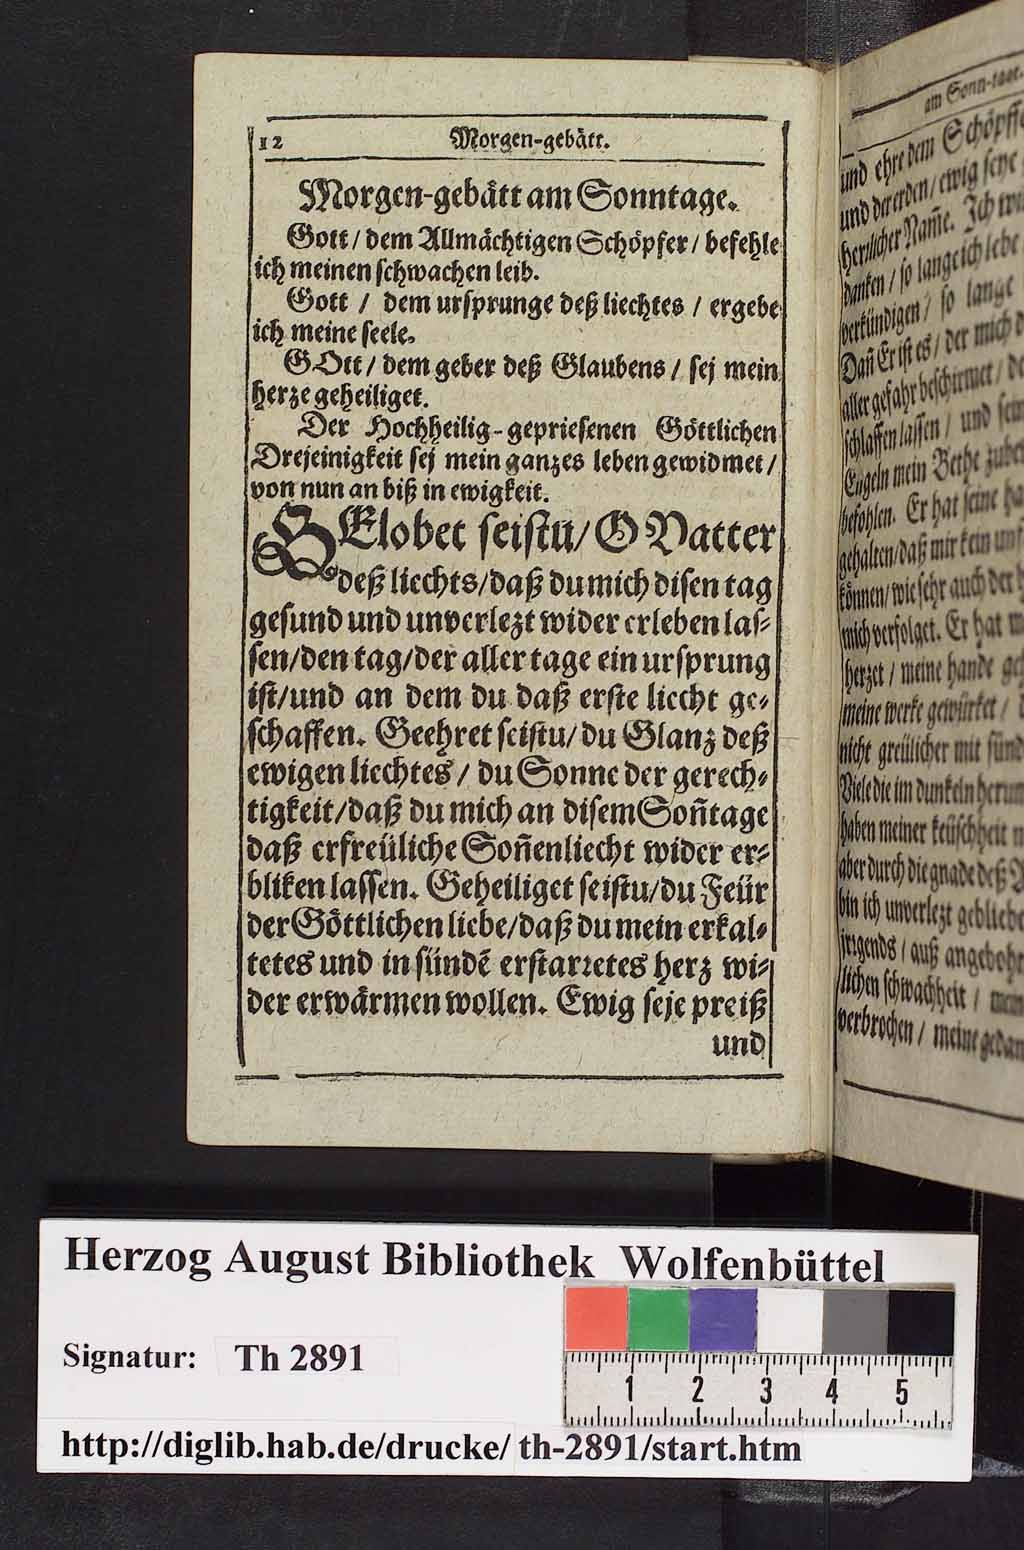 12 Morgen-gebätt.
Morgen-gebätt am Sonntage.
Gott / dem Allmächtigen Schöpfer / befehle
ich meinen schwachen leib.
Gott / dem ursprunge deß liechtes / ergebe
ich meine seele.
GOtt / dem geber deß Glaubens / sej mein
herze geheiliget.
Der Hochheilig-gepriesenen Göttlichen
Drejeinigkeit sej mein ganzes leben gewidmet /
von nun an biß in ewigkeit.
GElobet seistu / O Vatter
deß liechts / daß du mich disen tag
gesund und unverlezt wider erleben las-
sen / den tag / der aller tage ein ursprung
ist / und an dem du daß erste liecht ge-
schaffen. Geehret seistu / du Glanz deß
ewigen liechtes / du Sonne der gerech-
tigkeit / daß du mich an disem Soñtage
daß erfreüliche Soñenliecht wider er-
bliken lassen. Geheiliget seistu / du Feür
der Göttlichen liebe / daß du mein erkal-
tetes und in sündẽ erstarretes herz wi-
der erwärmen wollen. Ewig seje preiß
und
am Sonn-tage.
und ehre dem Schöpffe
und der erden / ewig seye
herrlicher Nam̃e. Ich
danken / so lange ich lebe
verkündigen / so lange
Dañ Er ist es / der mich
aller gefahr beschirmet /
schlaffen lassen / und sein
Engeln mein Bethe
befohlen. Er hat seine
gehalten / daß mir kein
können / wie sehr auch der
mich verfolget. Er hat
herzet / meine hande
meine werke gewürket /
nicht greülicher mit
Viele die im dunkeln herum
haben meiner keüschheit
aber durch die gnade deß
bin ich unverlezt gebliebe
jrgends / auß angebohr
lichen schwachheit / mein
verbrochen / meine gedan
Herzog August Bibliothek Wolfenbüttel
Signatur: Th 2891
1 2 3 4 5
http://diglib.hab.de/drucke/ th-2891/start.htm